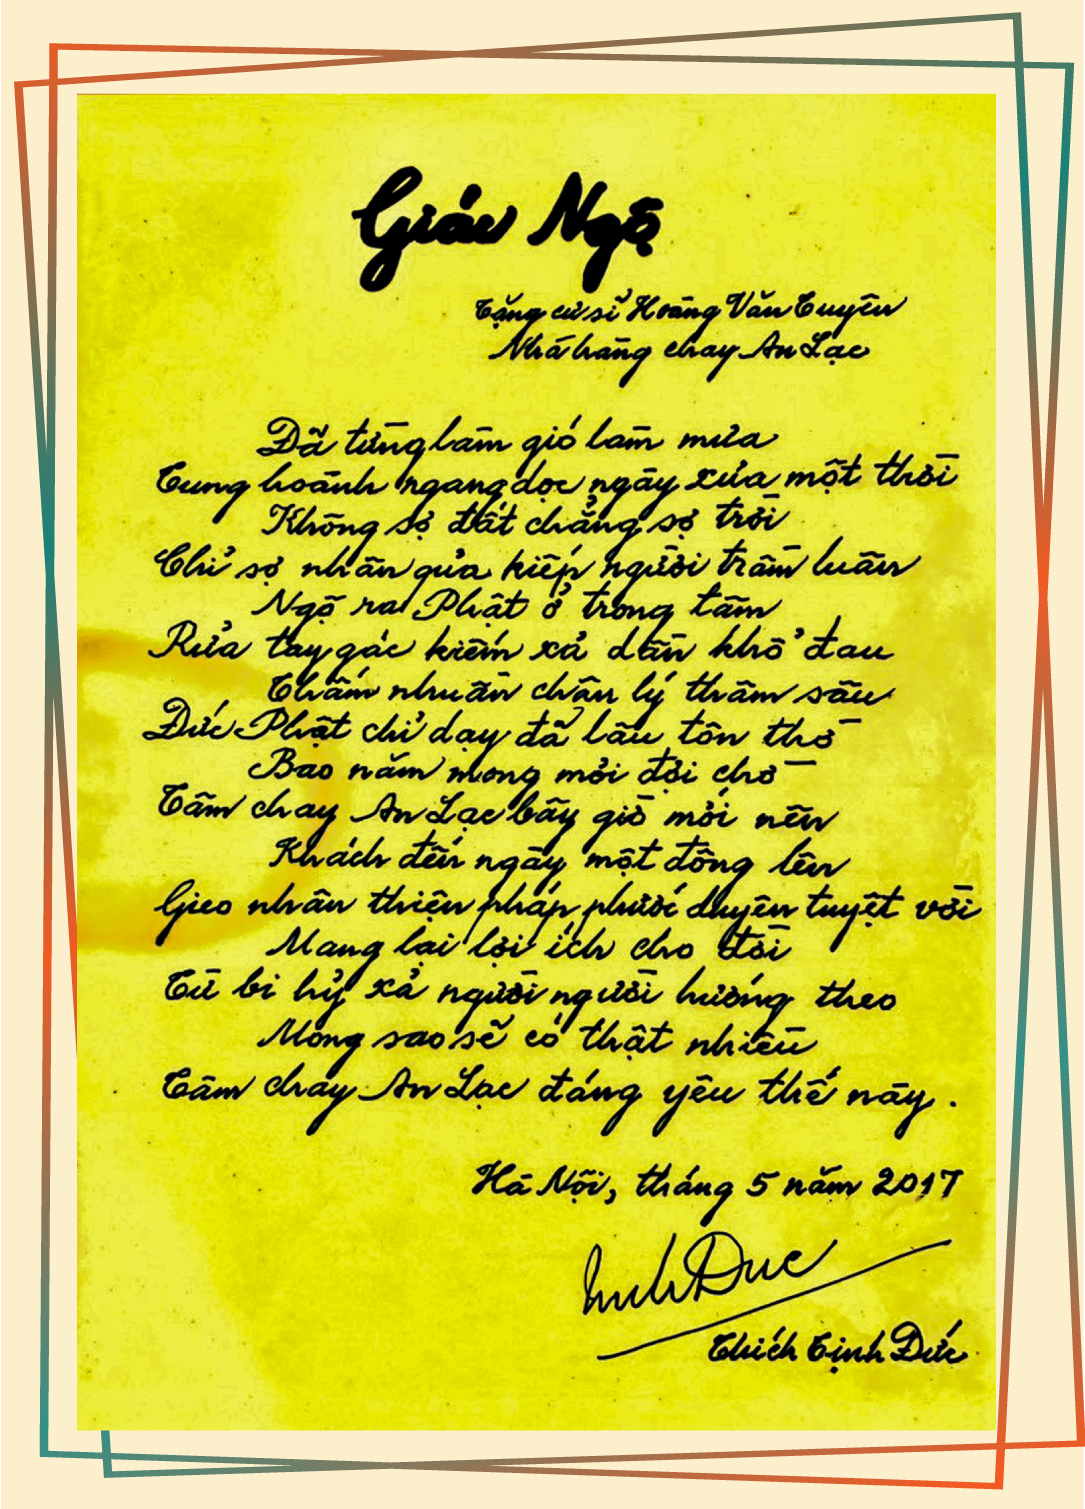 Giác Ngộ
Tặng cư sĩ Hoàng Văn Tuyên
Nhà hàng chay An Lạc
Đã từng làm gió làm mưa
Tung hoành ngang dọc ngày xưa một thời
Không sợ đất chẳng sợ trời
Chỉ sợ nhân qủa kiếp người trầm luân
Ngộ ra Phật ở trong tâm
Rửa tay gác kiếm xả dần khổ đau
Thấm nhuần chân lý thâm sâu
Đức Phật chỉ dạy đã lâu tôn thờ
Bao năm mong mỏi đợi chờ
Tâm chay An Lạc bây giờ mới nên
Khách đến ngày một đông lên
Gieo nhân thiện pháp phước duyên tuyệt vời
Mang lại lợi ích cho đời
Từ bi hỷ xả người người hướng theo
Mong sao sẽ có thật nhiều
Tâm chay An Lạc đáng yêu thế này.
Hà Nội, tháng 5 năm 2017
Thích Tịnh Đức